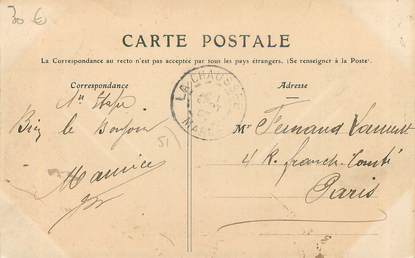 30 €
CARTE POSTALE
La Correspondance au recto n'est pas acceptée par tous les pays étrangers. (Se renseigner à la Poste).
Correspondance
Adresse
LA CHAUSSÉE
MARNE
le Bonjour
Maurice
51
Mr Fernand
4 R. franche-Comté
Paris